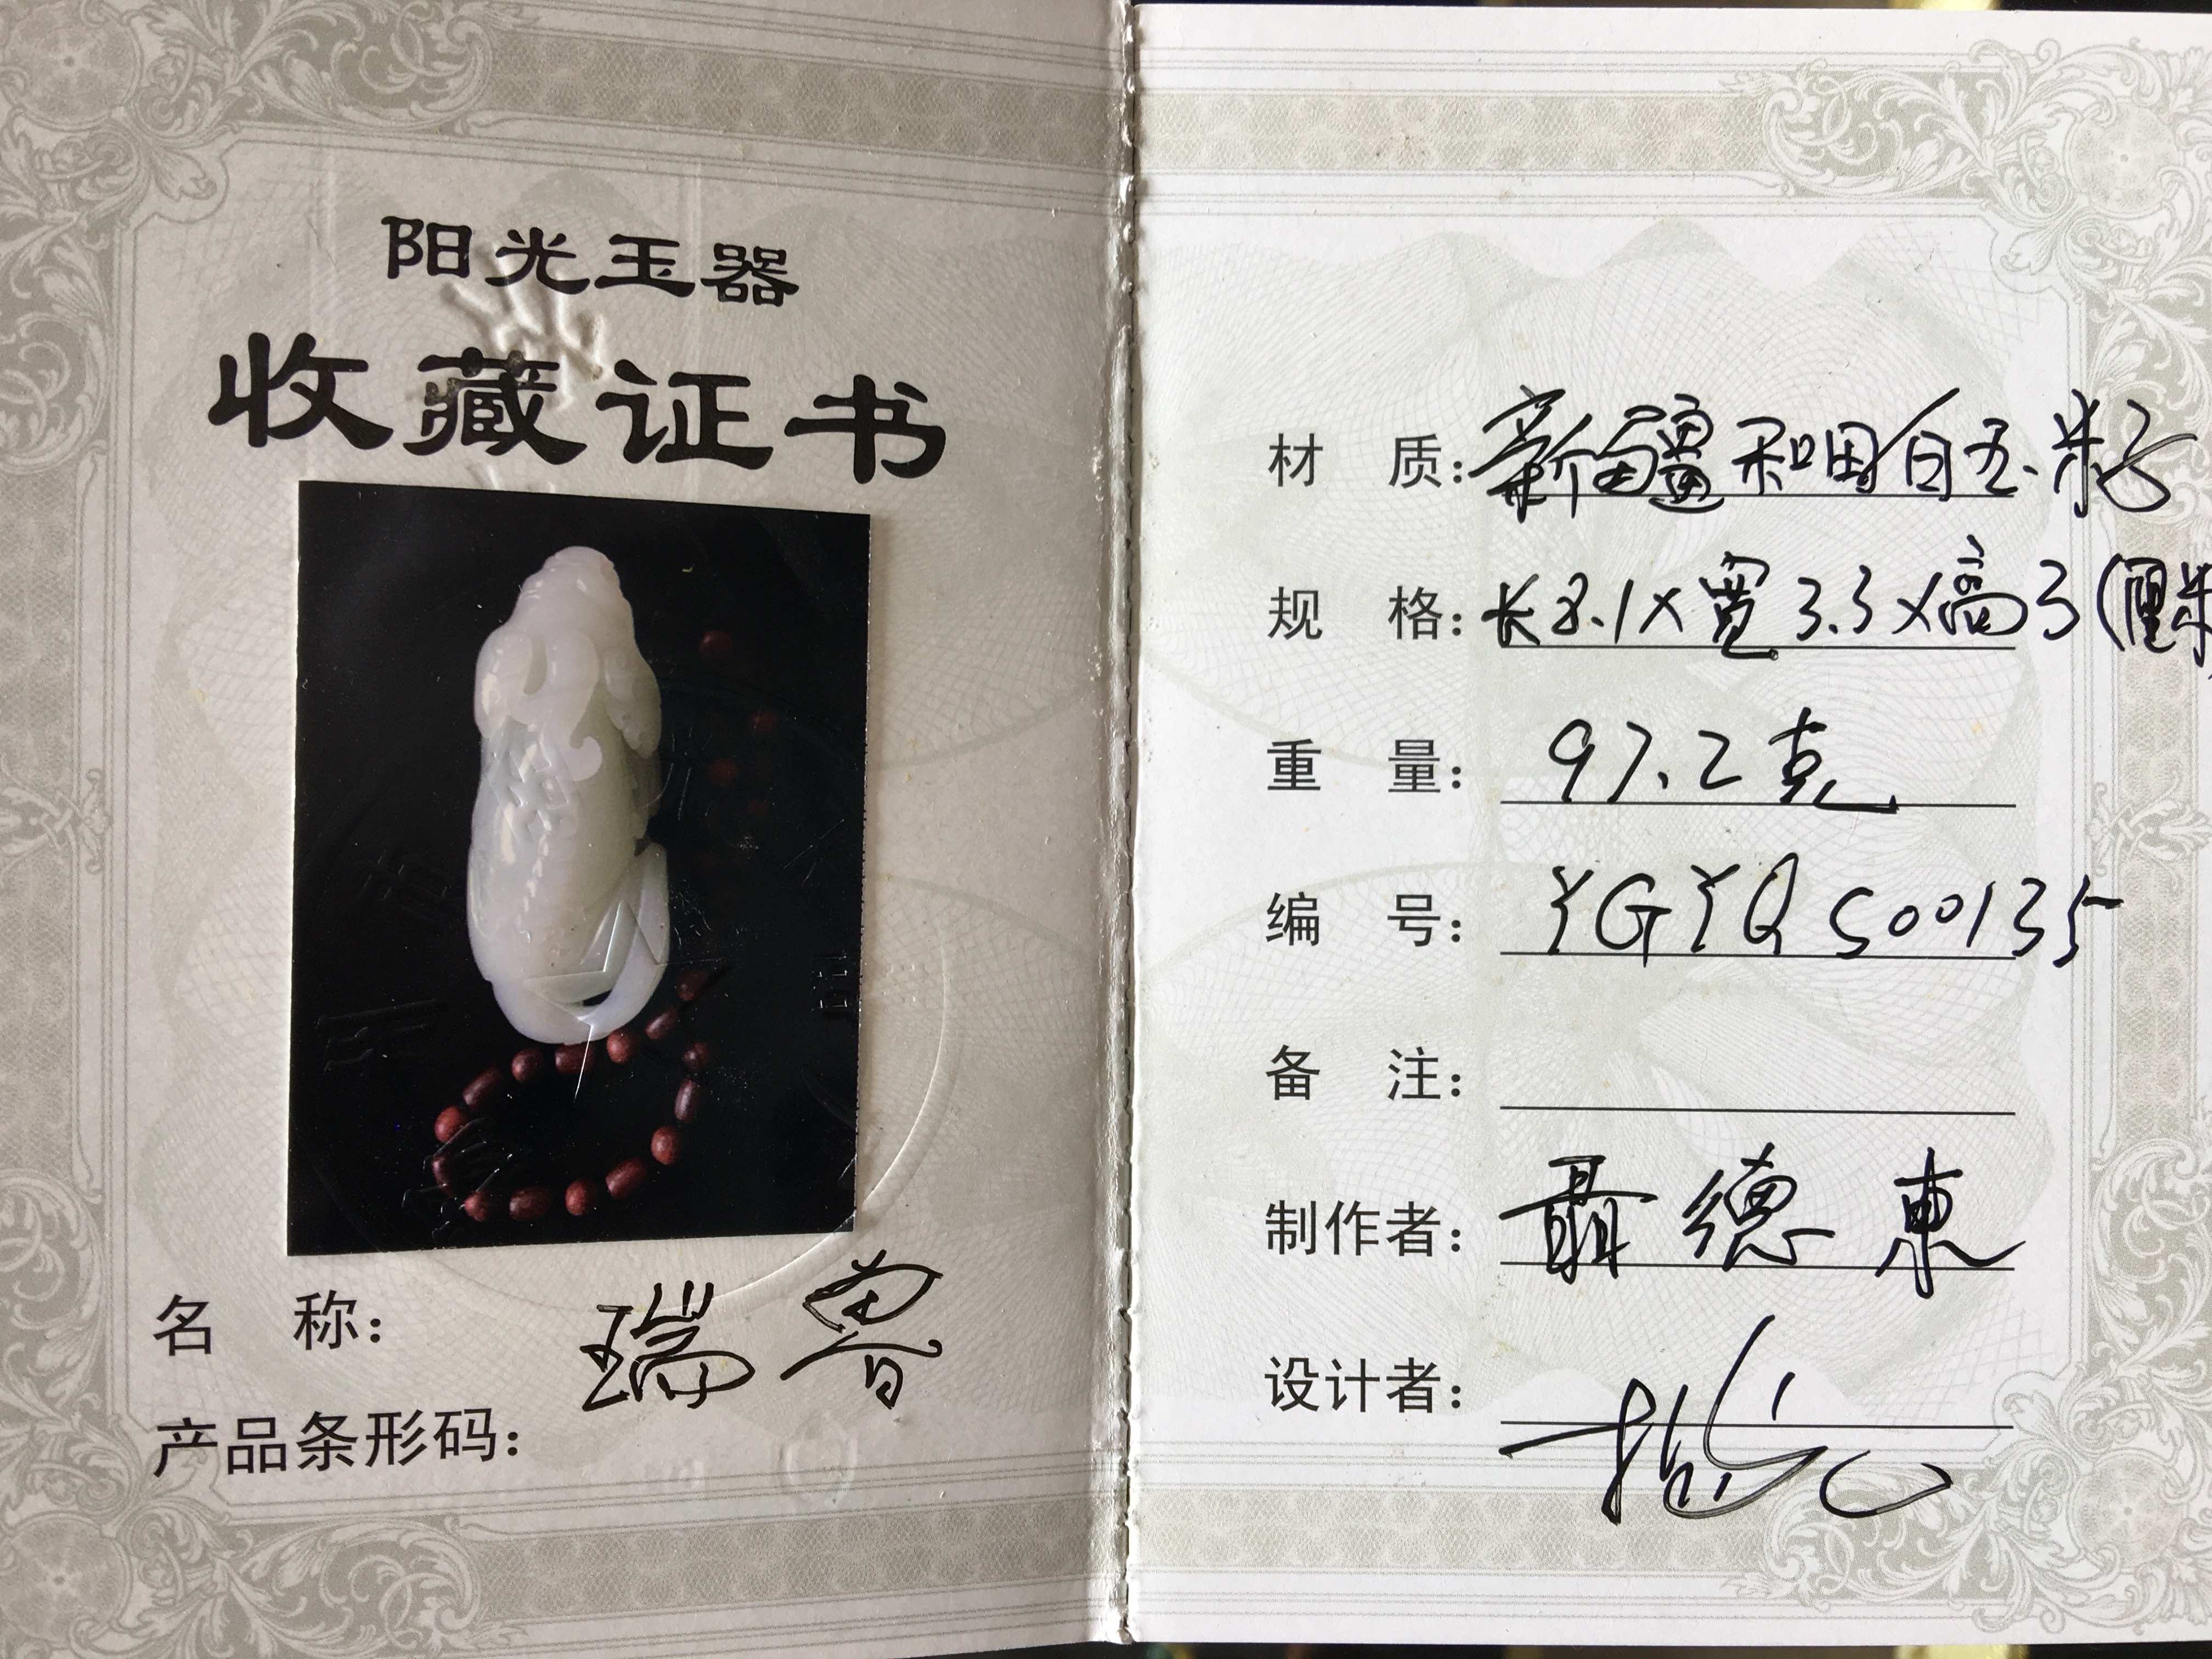 阳光玉器
收藏证书
名 称: 瑞兽
产品条形码:
材 质: 新疆和田白玉籽
规 格: 长8.1×宽3.3×高3(厘米
重 量: 97.2克
编 号: YGYQS00135
备 注:
制作者: 聶德東
设计者: